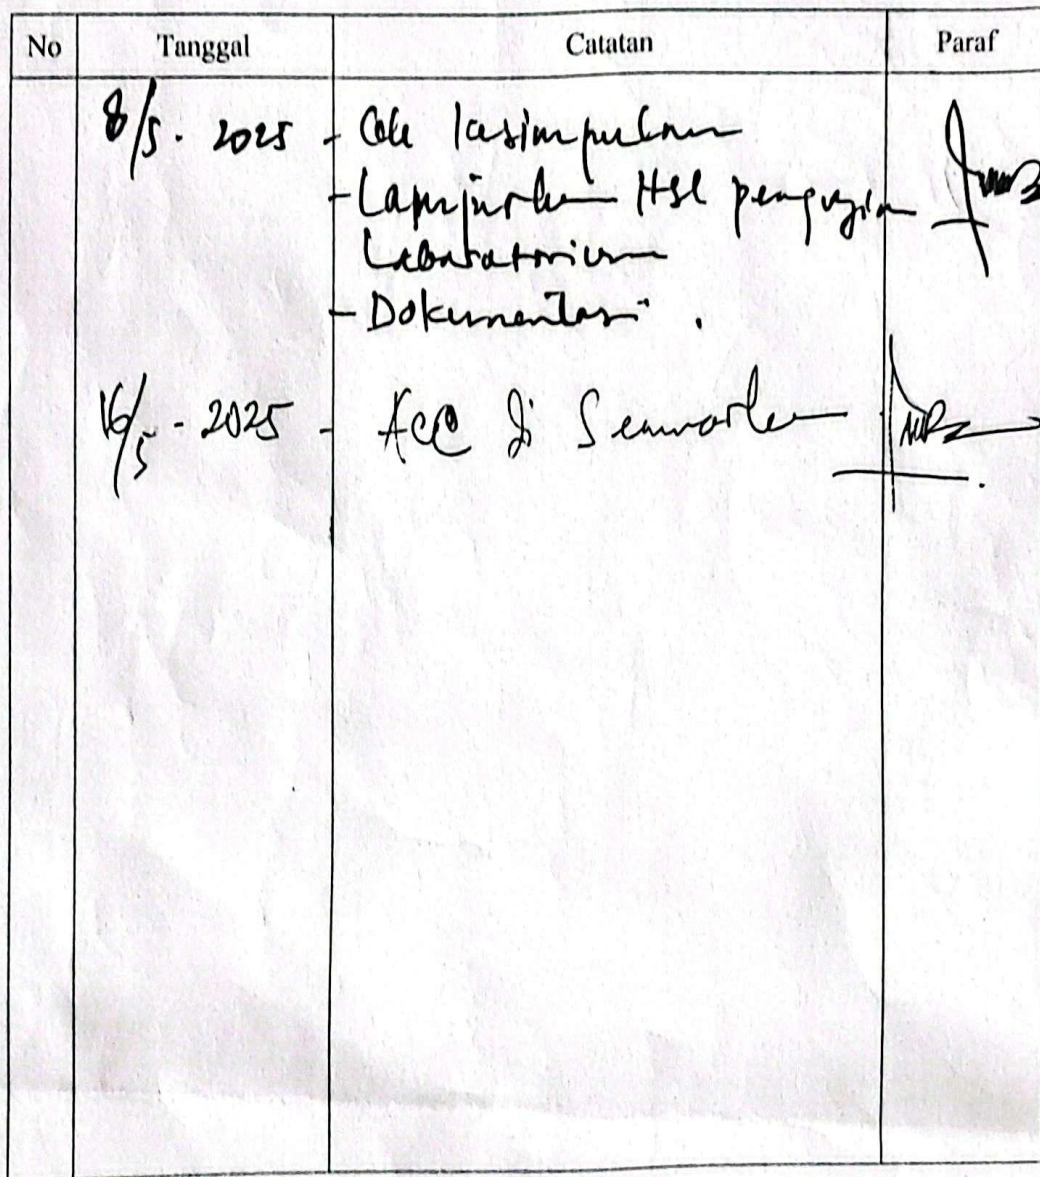 No Tanggal Catatan Paraf
8/5. 2025 - Cek kesimpulan
- Lampirkan Hsl pengujian
Laboratorium
- Dokumentasi.
16/5 - 2025 - Acc di Seminarkan